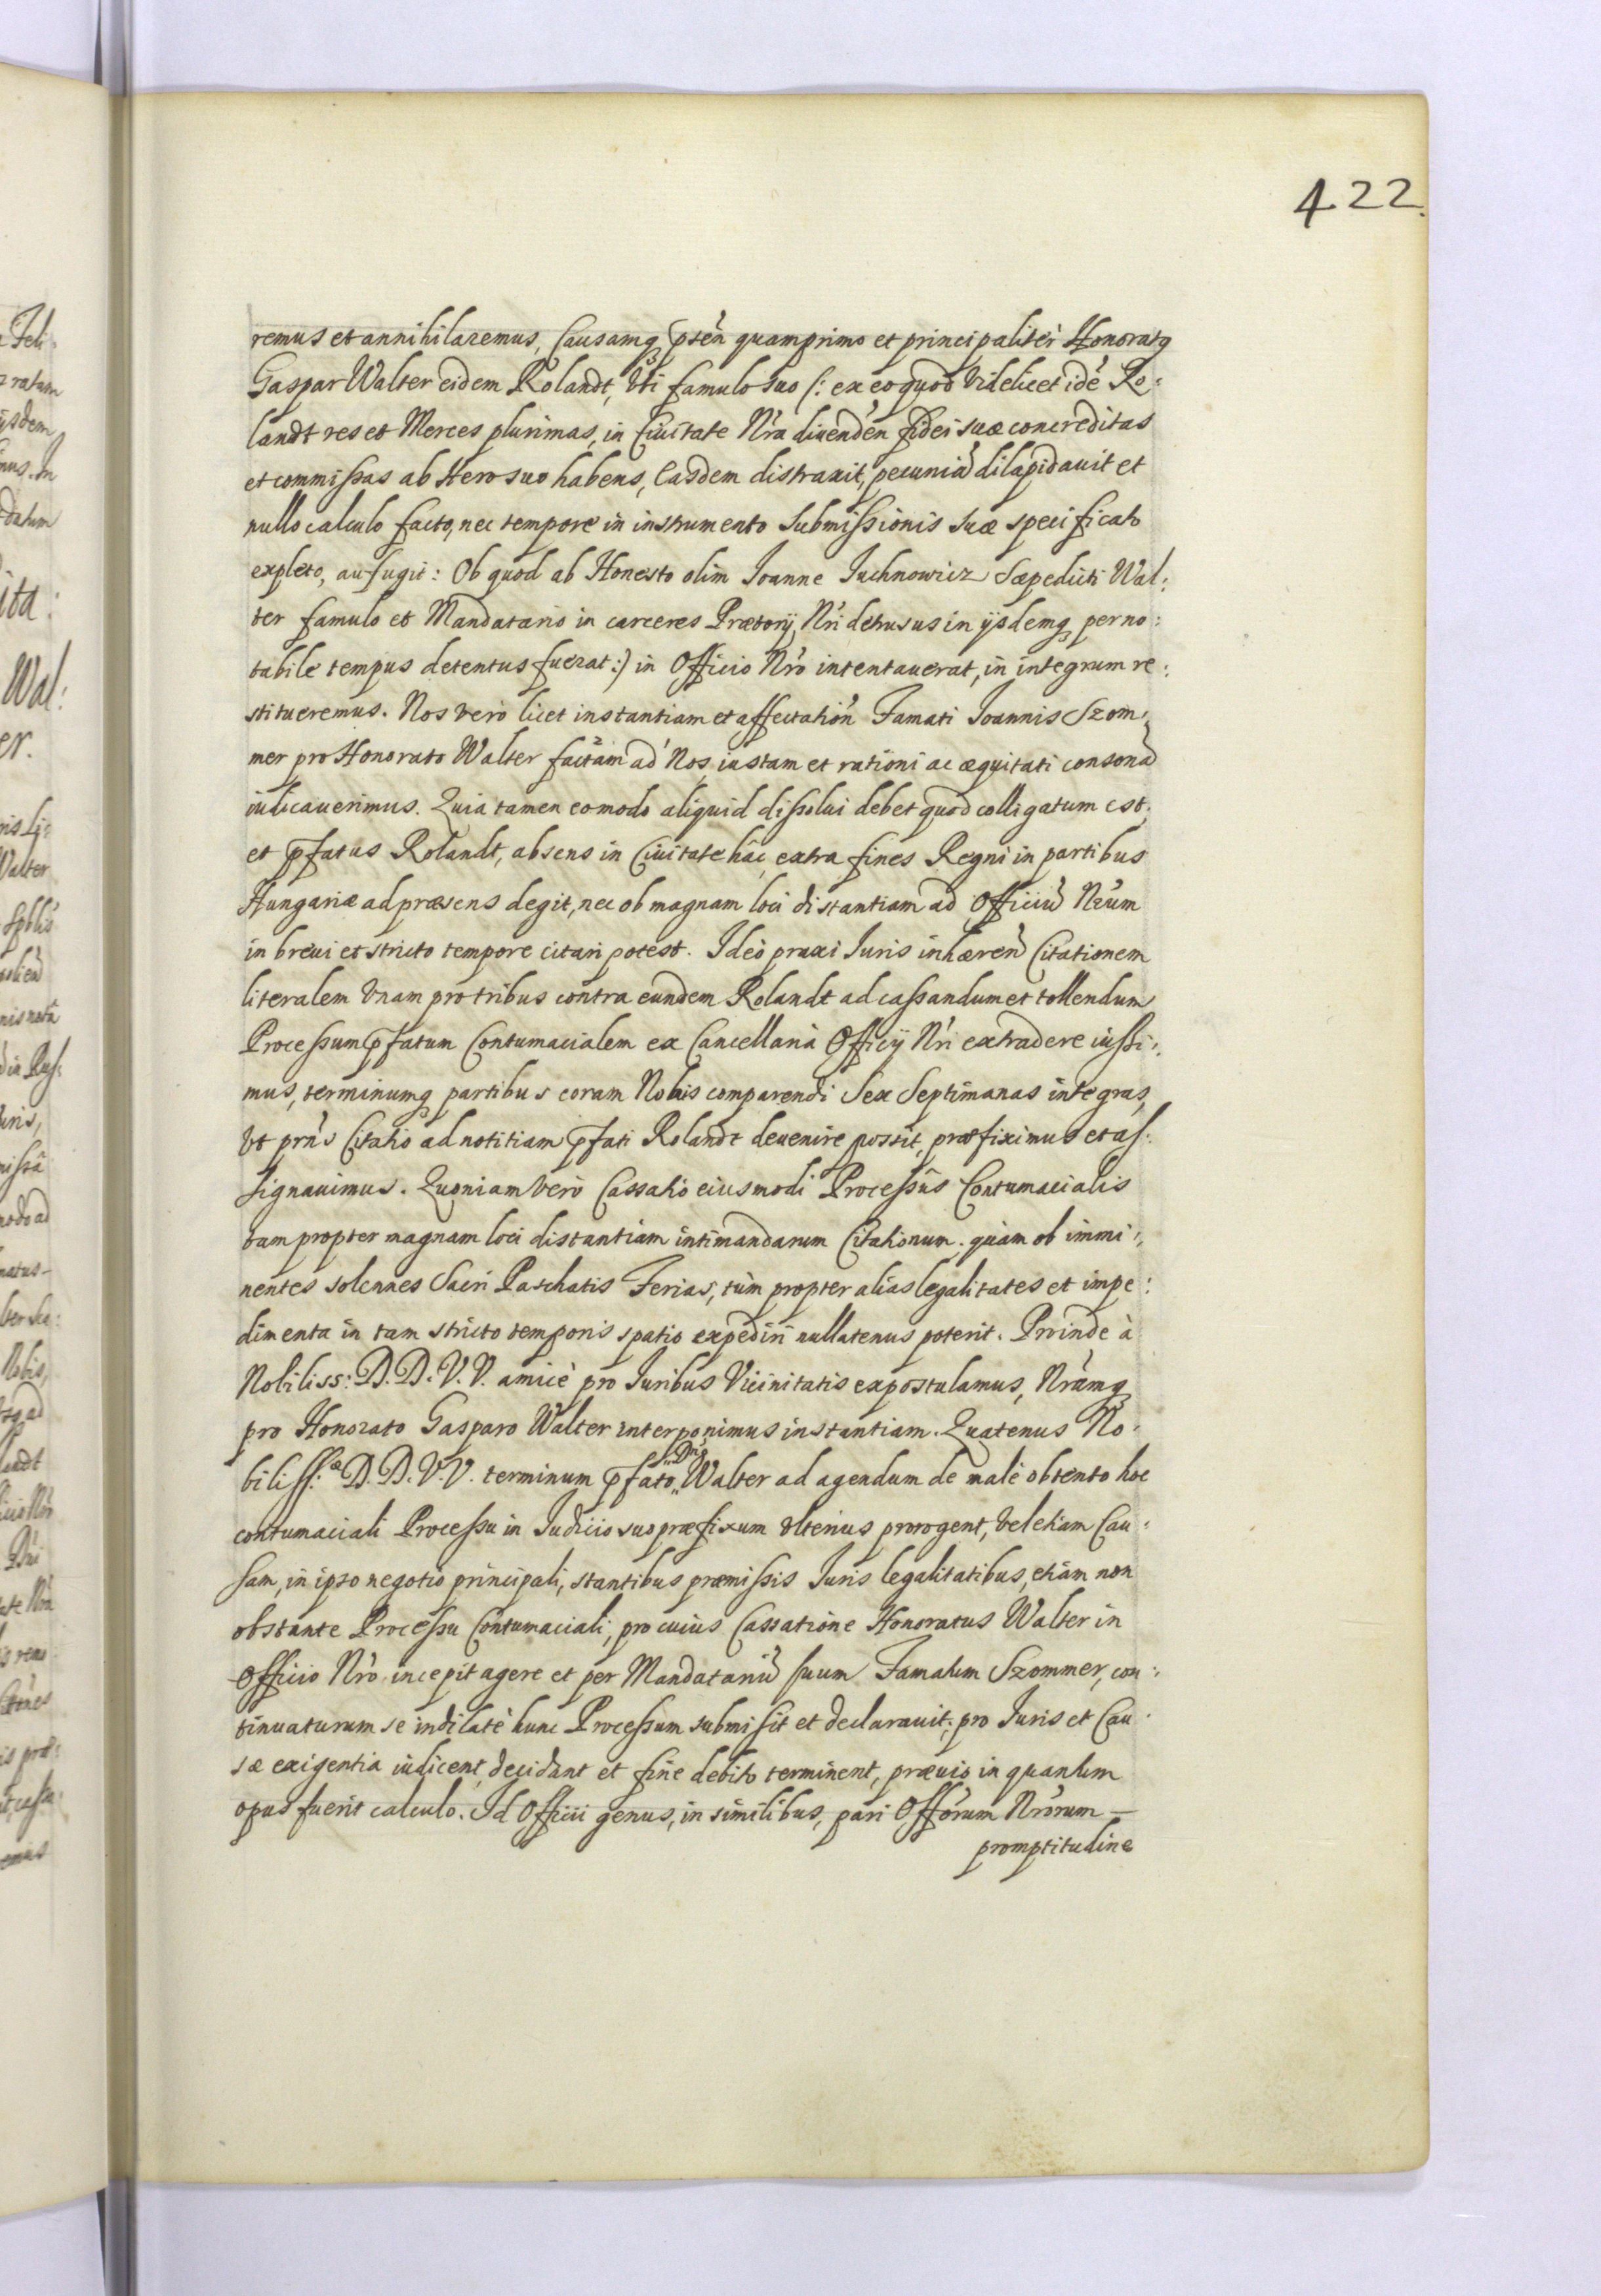 422.
remus et annihilaremus, Causamq₃ pntẽn quamprimo et principalitèr Honoratꝯ
Gaspar Walter eidem Rolandt, Vti famulo suo (: ex eo quod Videlicet idē Ro:
landt res et Merces plurimas, in Ciuitate Nrã diuendēn fidei suæ concreditas
et commissas ab Hero suo habens, Easdem distraxit, pecuniā dilapidauit et
nullo calculo facto, nec tempore in instrumento Submissionis Suæ specificato
expleto, aufugit: Ob quod ab Honesto olim Ioanne Juchnowicz Sæpedicti Wal:
ter famulo et Mandatario in carceres Prætorij Nri detrusus in ijsdemq₃ per no:
tabile tempus detentus fuerat:) in Officio Nrõ intentauerat, in integrum re:
stitueremus. Nos verò licet instantiam et affectatiōn Famati Ioannis Szom:
mer pro Honorato Walter factam ad Nos, iustam et rationi ac æquitati consonā
iudicauerimus. Quia tamen eo modo aliquid dissolui debet quod colligatum est,
et p̄fatus Rolandt, absens in Ciuitate hâc, extra fines Regni in partibus
Hungariæ ad præsens degit, nec ob magnam loci distantiam ad Officiū Nrũm
in breui et stricto tempore citari potest. Ideò praxi Iuris inhærēn Citationem
literalem Vnam pro tribus contra eundem Rolandt ad cassandum et tollendum
Processum p̄fatum Contumacialem ex Cancellariâ Officij Nri extradere iussi:
mus, terminumq₃ partibus coram Nobis comparendi Sex Septimanas integras,
Vt prñs Citatio ad notitiam p̄fati Rolandt deuenire possit, præfiximus et as:
signauimus. Quoniam verò Cassatio eiusmodi Processûs Contumacialis
tam propter magnam loci distantiam intimandarum Citationum. quàm ob immi:
nentes solennes Sacri Paschatis Ferias, tùm propter alias legalitates et impe:
dimenta in tam stricto temporis spatio expediri nullatenus poterit. Proinde à
Nobiliss: D. D. V. V. amicè pro Iuribus Vicinitatis expostulamus, Nrãmq₃
pro Honorato Gasparo Walter interponimus instantiam. Quatenus No:
biliss:æ D. D. V. V. terminum p̄fato Dno Walter ad agendum de malè obtento hoc
contumaciali Processu in Iudicio suo præfixum Vlterius prorogent, Vel etiam Cau:
sam, in ipso negotio principali, stantibus præmissis Iuris legalitatibus, etiam non
obstante Processu Contumaciali, pro cuius Cassatione Honoratus Walter in
Officio Nrõ incepit agere et per Mandatariū suum Famatum Szommer, con:
tinuaturum se indilatè hunc Processum submisit et declarauit, pro Iuris et Cau:
sæ exigentia iudicent, decidant et fine debito terminent, præuio in quantum
opus fuerit calculo. Id Officii genus, in similibus, pari Offõrum Nrõrum —
promptitudine